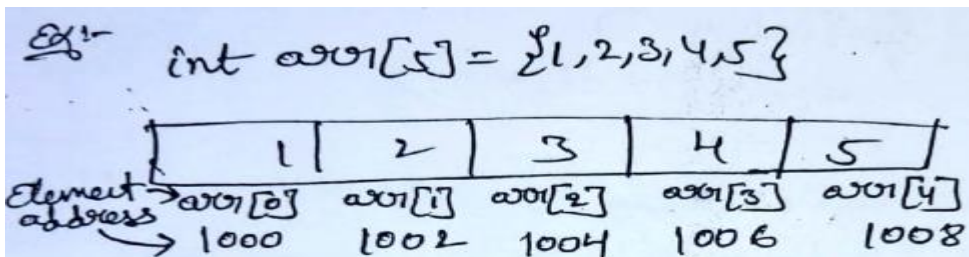 Ex:-
int arr[5] = {1,2,3,4,5}
1 2 3 4 5
Element → arr[0] arr[1] arr[2] arr[3] arr[4]
address → 1000 1002 1004 1006 1008